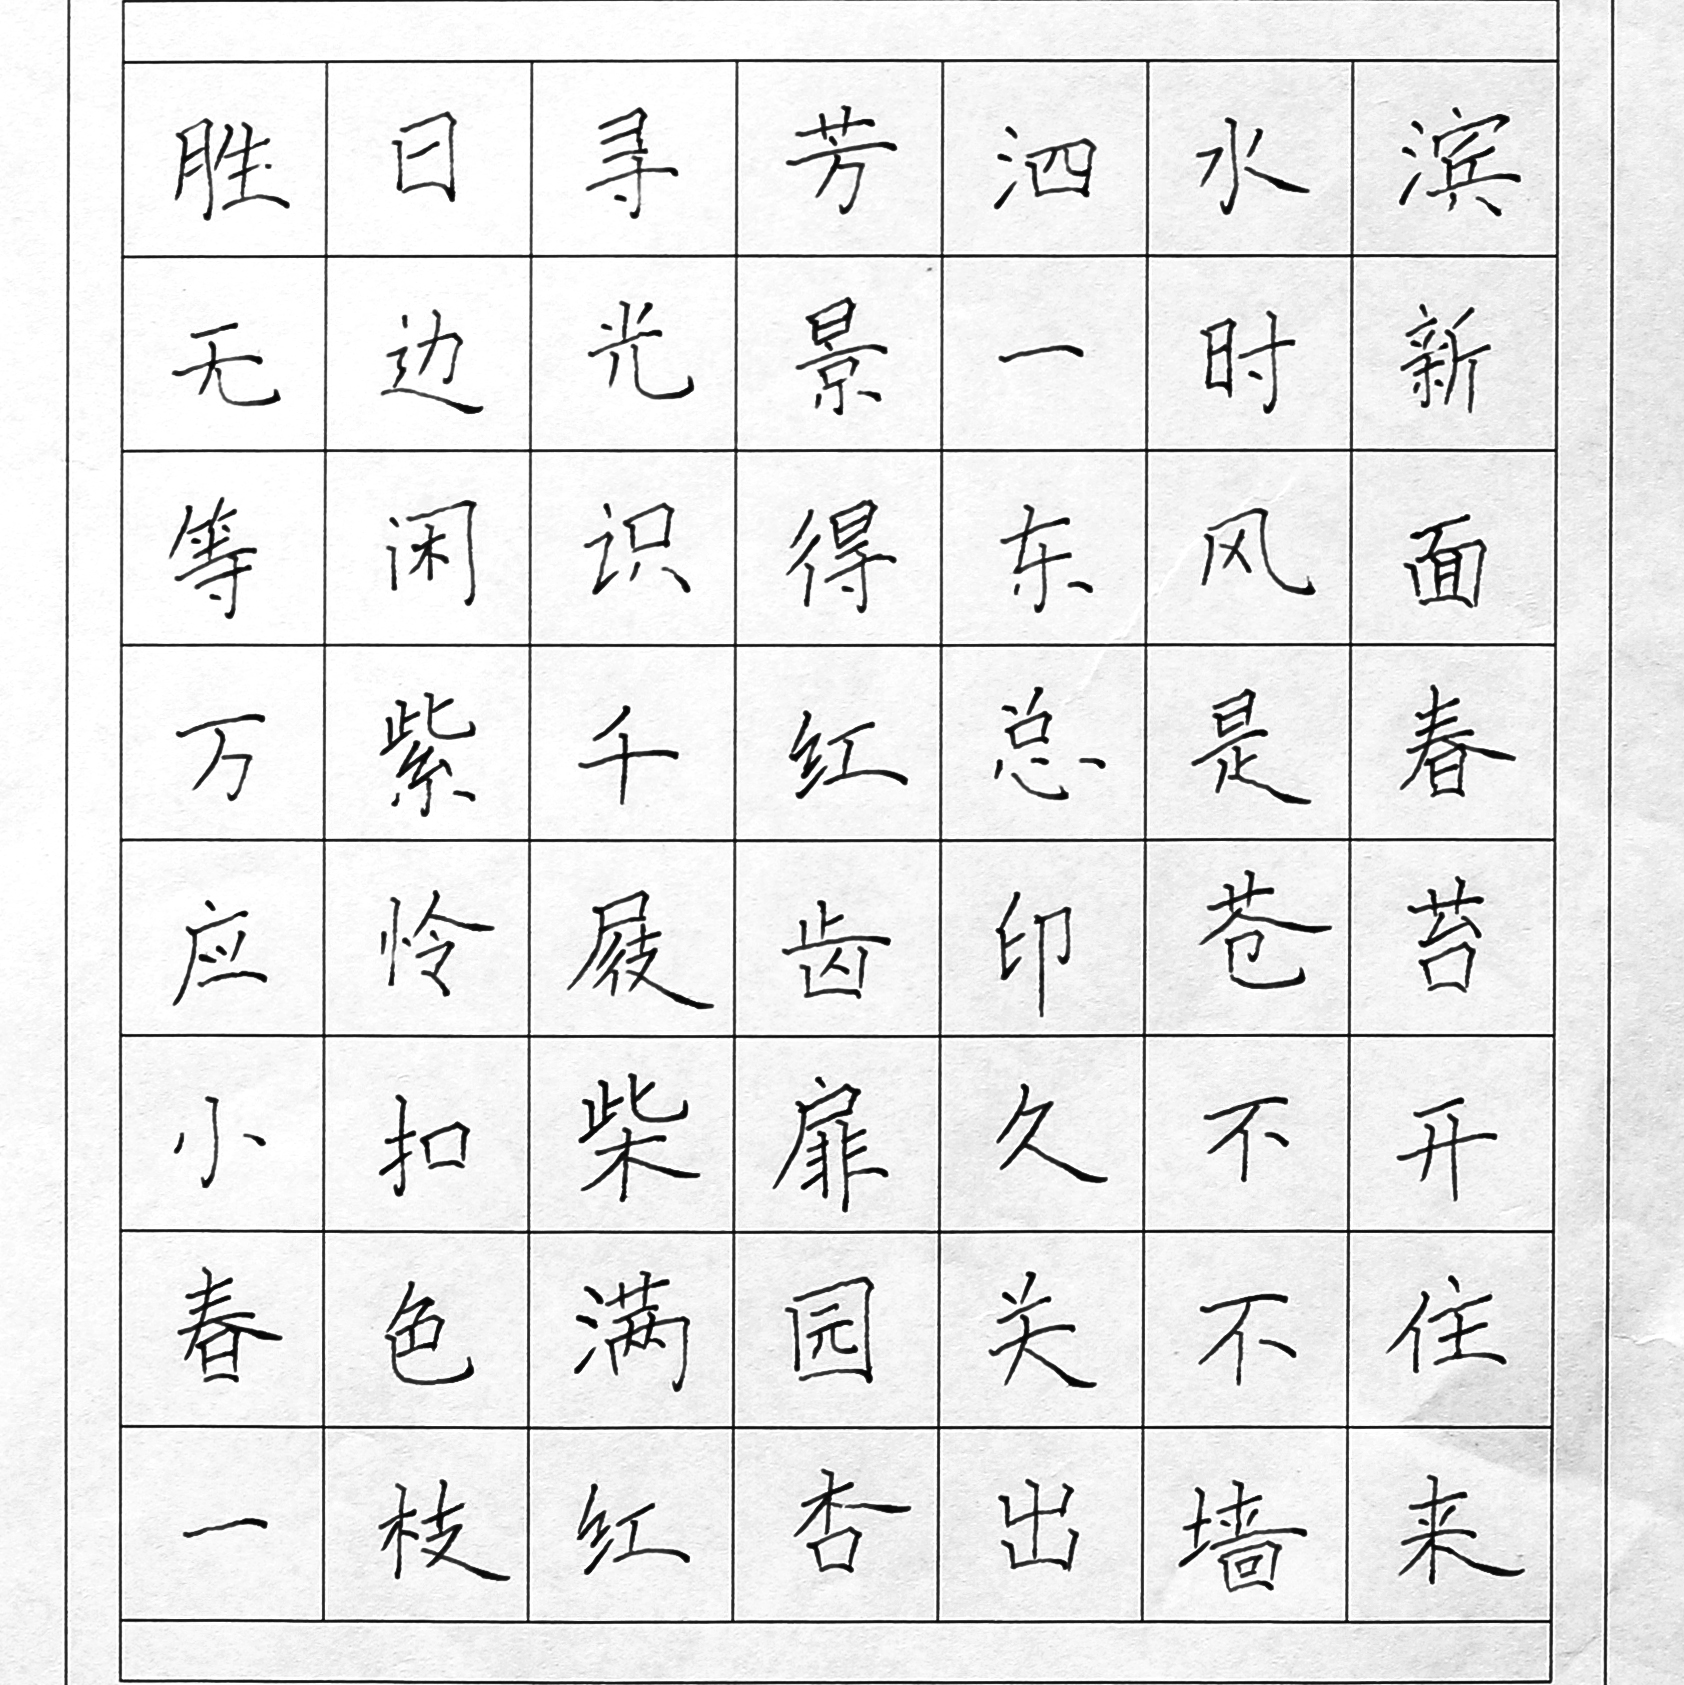 胜日寻芳泗水滨
无边光景一时新
等闲识得东风面
万紫千红总是春
应怜屐齿印苍苔
小扣柴扉久不开
春色满园关不住
一枝红杏出墙来